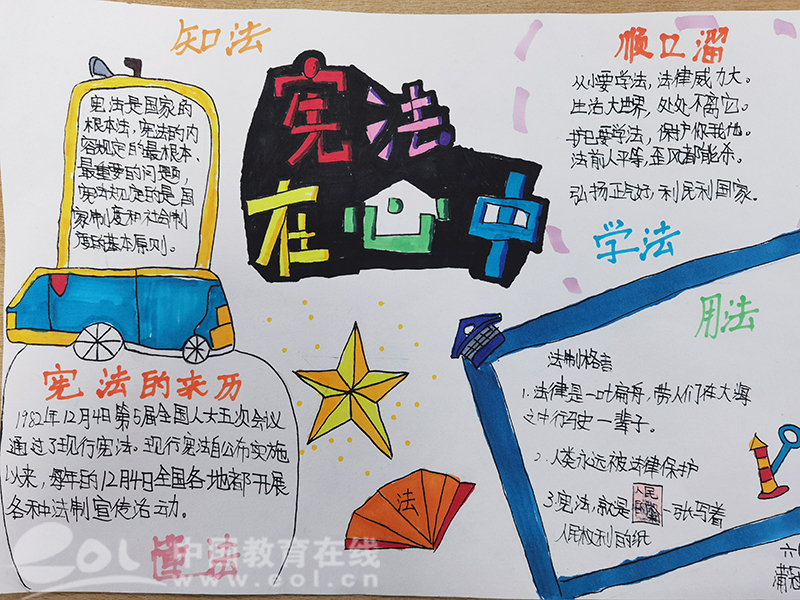 知法
宪法是国家的
根本法，宪法的内
容规定的最根本、
最重要的问题，
宪法规定的是国
家制度和社会制
度的基本原则。
宪法
在心中
顺口溜
从小要学法，法律威力大。
生活大世界，处处不离它。
护己要学法，保护你我他。
法前人平等，歪风都能杀。
弘扬正气好，利民利国家。
学法
用法
宪法的来历
1982年12月4日第5届全国人大五次会议
通过了现行宪法。现行宪法自公布实施
以来，每年的12月4日全国各地都开展
各种法制宣传活动。
法
法制格言
1.法律是一叶扁舟，带人们在大海
之中行驶一辈子。
2.人类永远被法律保护
3.宪法，就是
人民
一张写着
人民权利的纸
中国教育在线
www.eol.cn